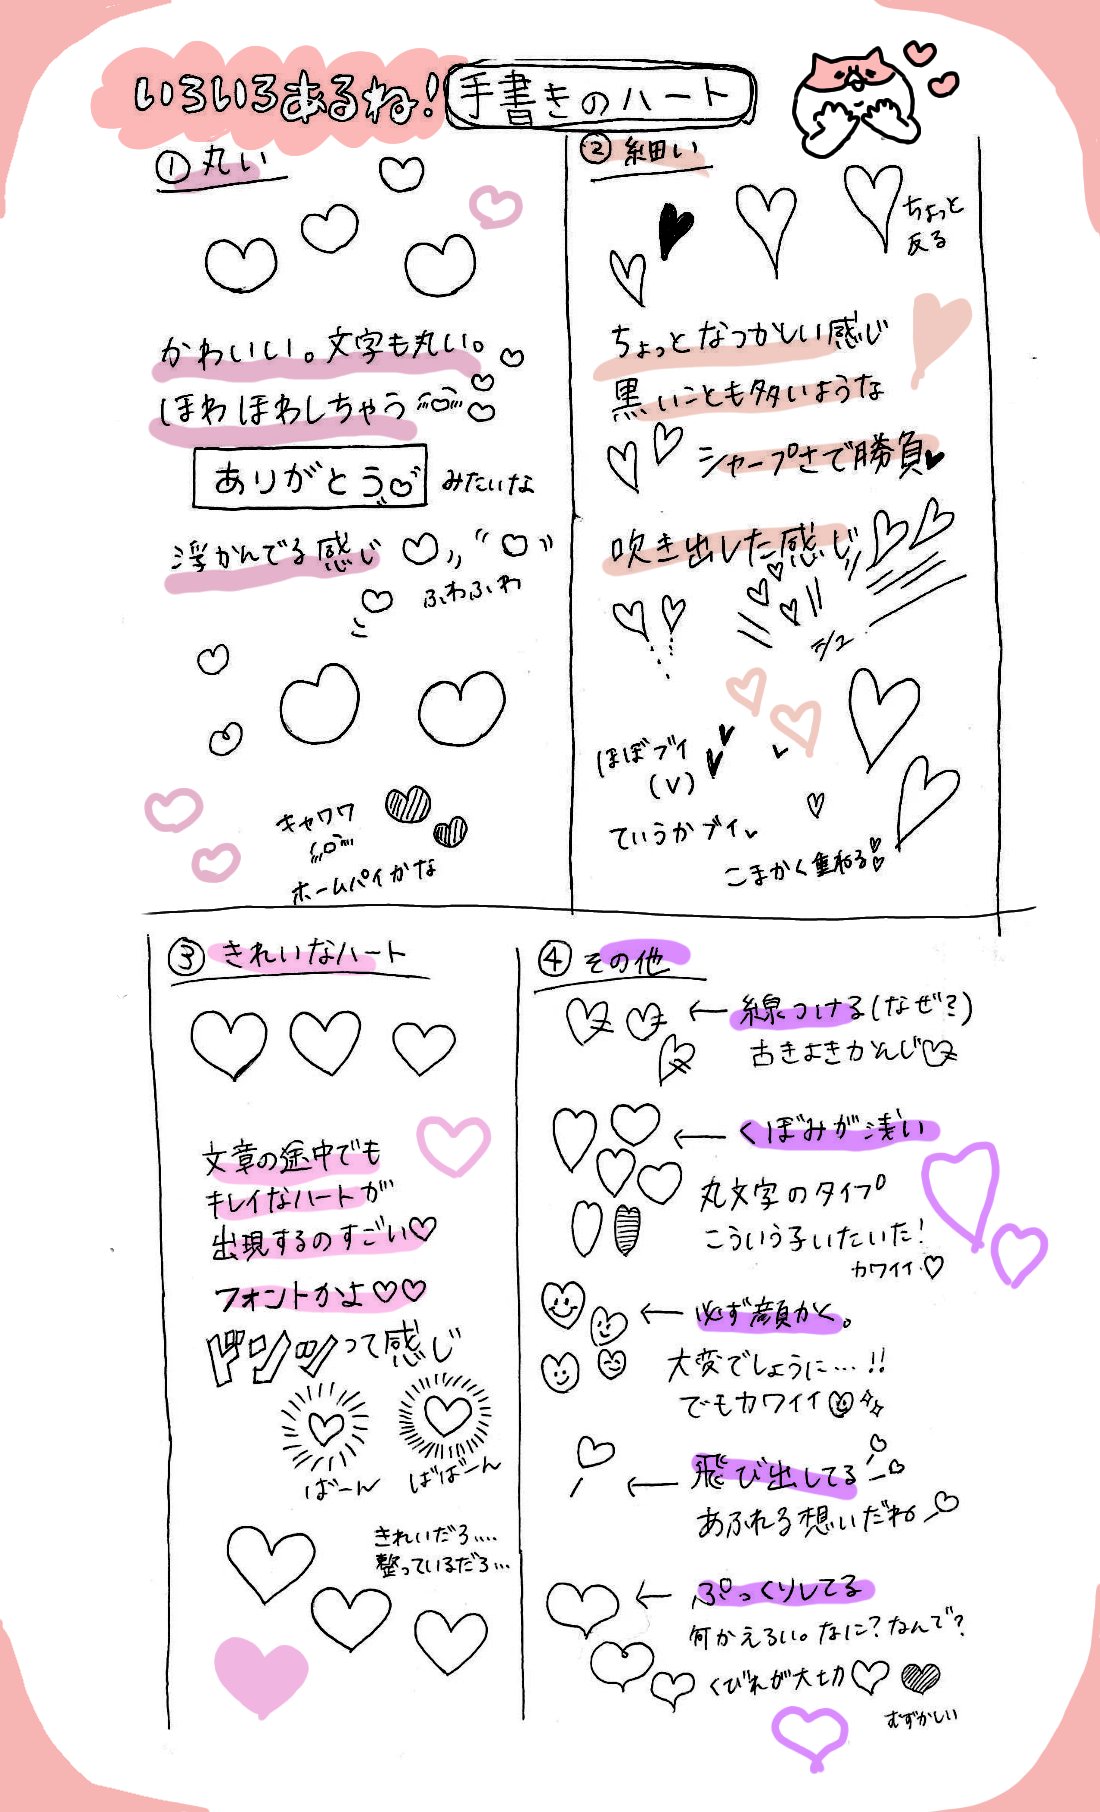 いろいろあるね!手書きのハート
①丸い
かわいい。文字も丸い。
ほわほわしちゃう
ありがとう みたいな
浮かんでる感じ
ふわふわ
キャワワ
ホームパイかな
②細い
ちょっと
反る
ちょっとなつかしい感じ
黒いことも多いような
シャープさで勝負
吹き出した感じ
ほぼブイ
(V)
ていうかブイ
こまかく重ねる
③きれいなハート
文章の途中でも
キレイなハートが
出現するのすごい♡
フォントかよ♡♡
ドンッって感じ
ばーん
ばばーん
きれいだろ....
整っているだろ...
④その他
←線つける(なぜ?)
古きよきかんじ
←くぼみが浅い
丸文字のタイプ
こういう子いたいた!
カワイイ♡
←必ず顔かく。
大変でしょうに...!!
でもカワイイ
←飛び出してる
あふれる想いだね
←ぷっくりしてる
何かえろい。なに?なんで?
くびれが大切♡
むずかしい